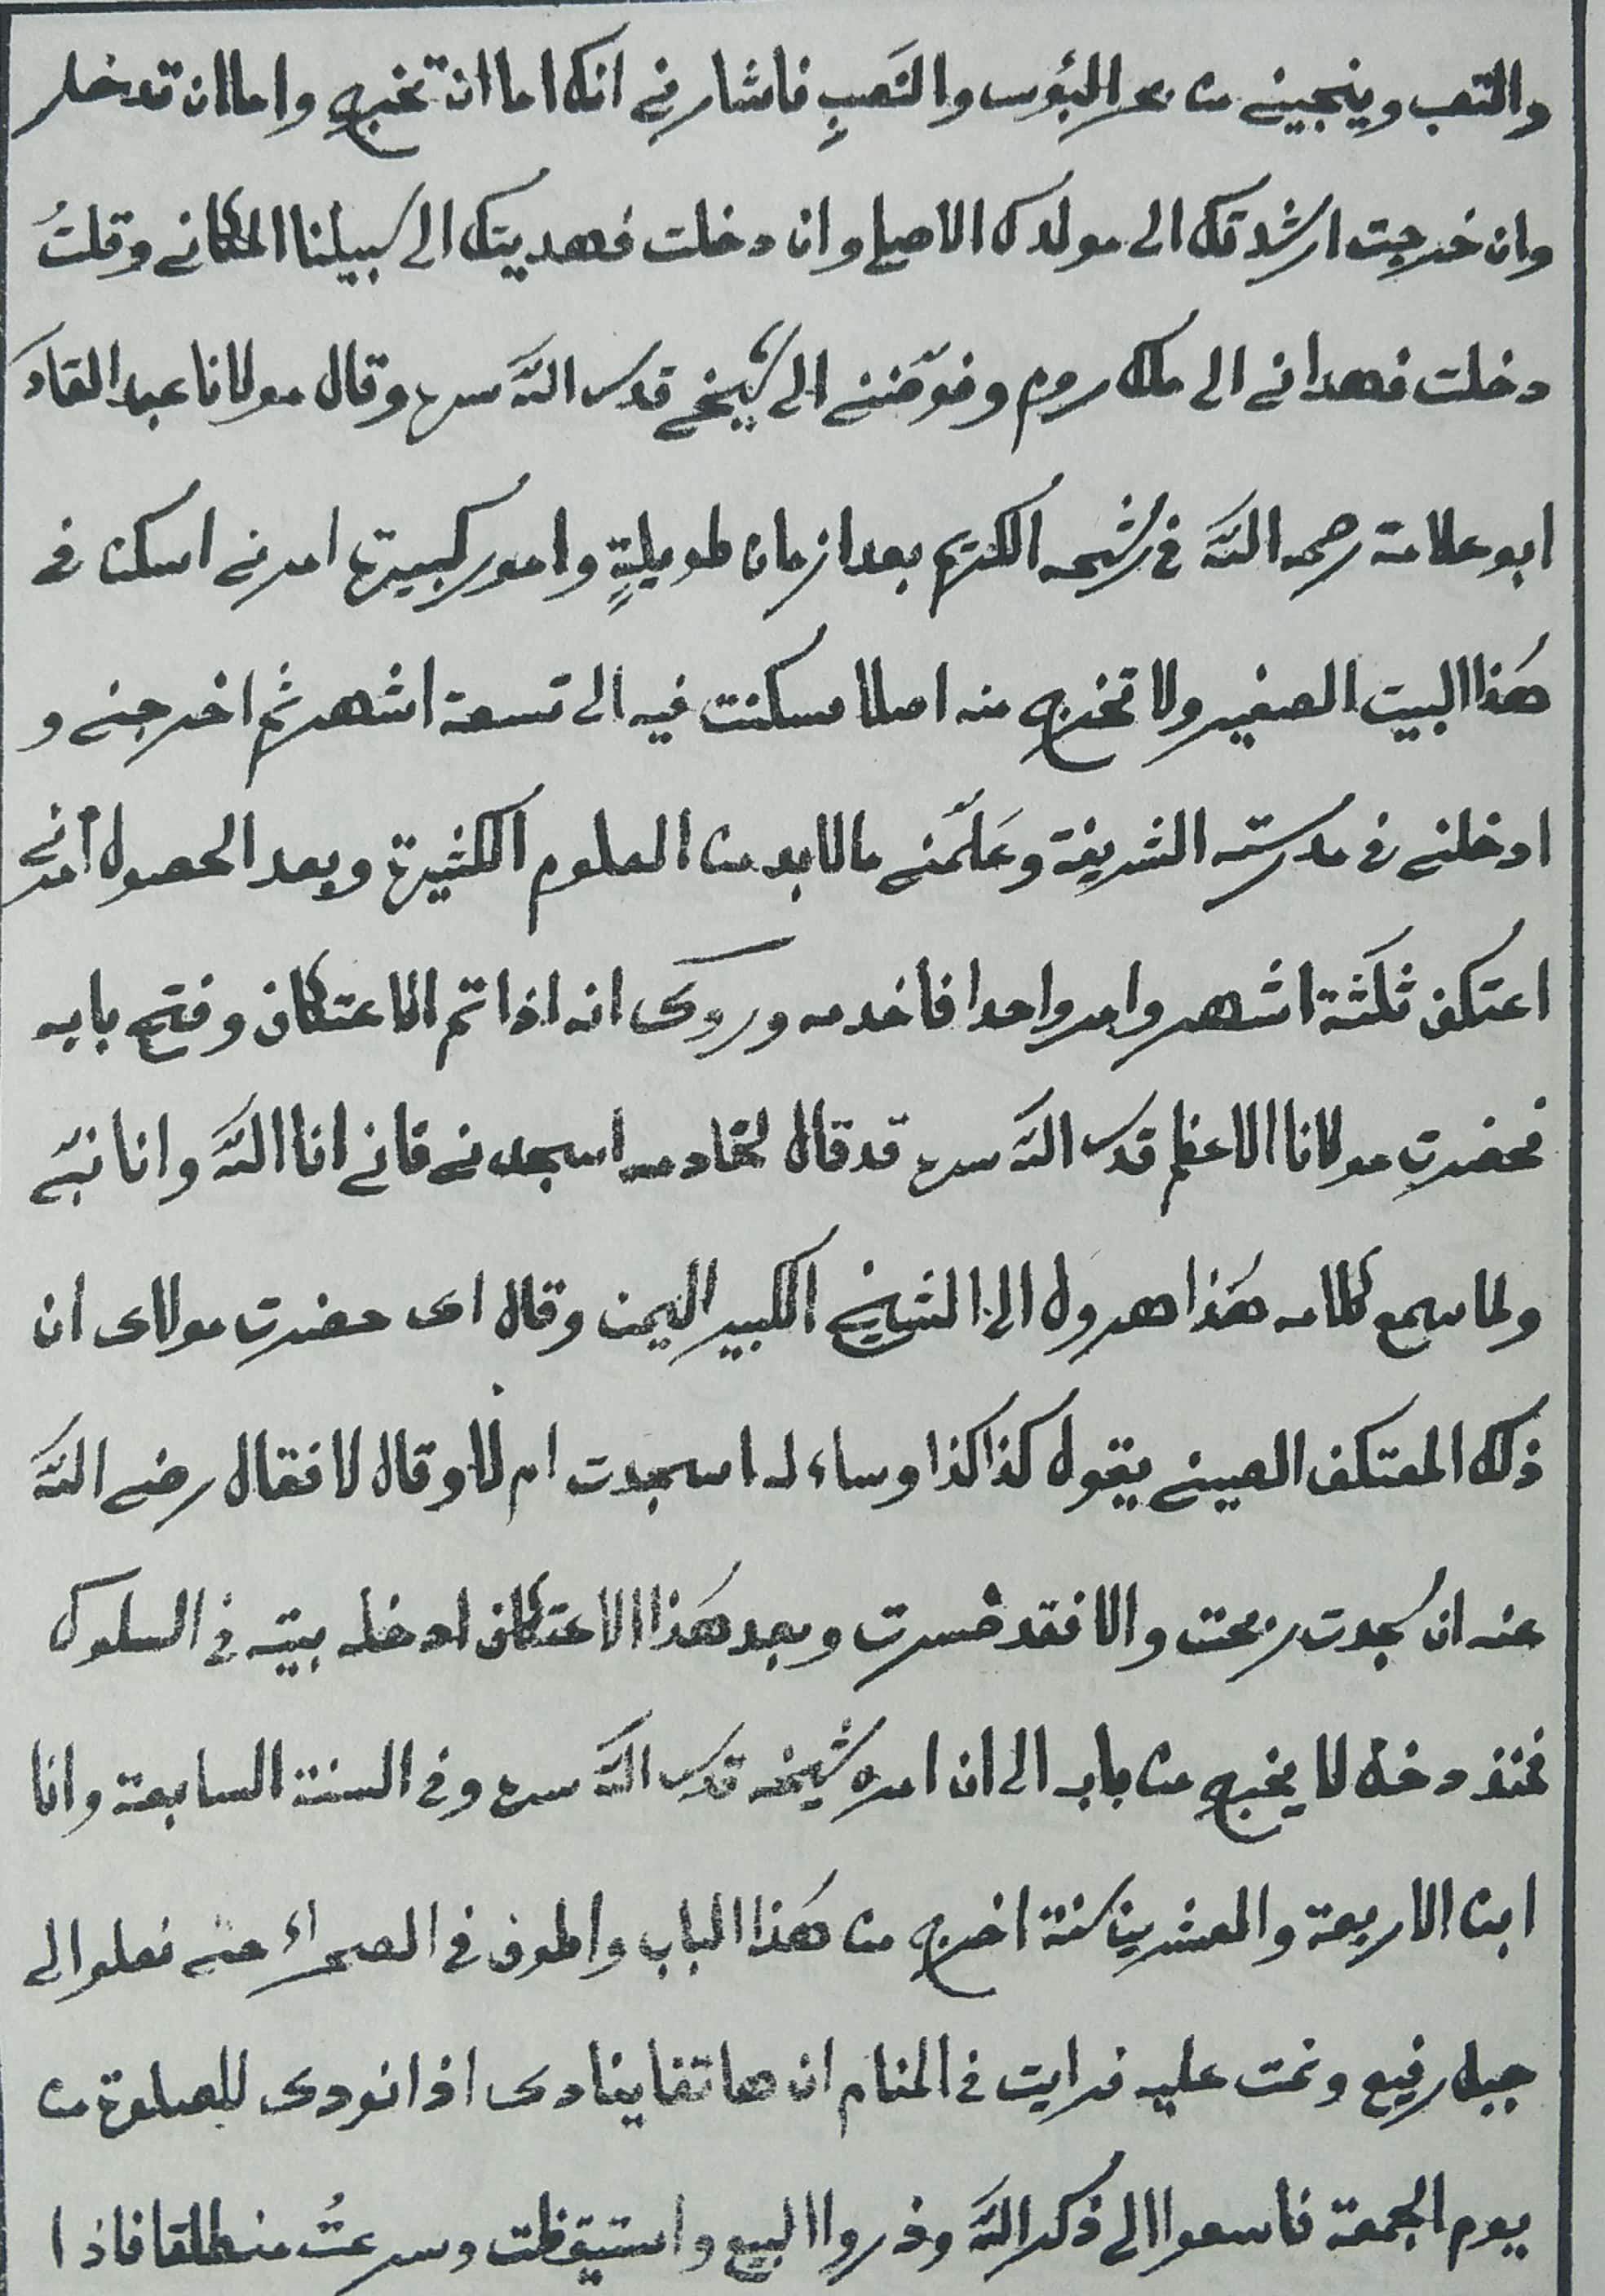 والتعب وينجينى من بحر البؤس والنَصبِ فاشارنى انك اما ان تخرج واما ان تدخل
وان خرجت ارشدتك الى مولدك الاصلى وان دخلت فهديتك الى سبيلنا المكانى وقلتُ
دخلت فهدانى الى ملك روم وفوّضنى الى شيخى قدس اللّٰه سره وقال مولانا عبد القادَ
ابو علامة رحمه اللّٰه فى شرحه الكريم بعد ازمان طويلةٍ وامور كبيرة امرنى اسكن فى
هٰذا البيت الصغير ولا تخرج منه اصلا فسكنت فيه الى تسعة اشهر ثم اخرجنى و
ادخلنى فى مدرسته الشريفة وعَلّمنى مالا بد من العلوم الكثيرة وبعد الحصول أمرنى
اعتكف ثلٰثة اشهر وامر واحدا فاخدمه وروى انه اذا تم الاعتكاف وفتح بابه
فحضرت مولانا الاعظم قدس اللّٰه سره قد قال لخادمه اسجدنى فانى انا اللّٰه وانا نبّى
ولما سمع كلامه هٰذا هرول الى الشيخ الكبير اليمن وقال اى حضرت مولاى ان
ذلك المعتكف الصينى يقول كذا كذا وساءله اسجدت ام لا وقال لا فقال رضى اللّٰه
عنه ان سجدت ربحت والا فقد خسرت وبعد هٰذا الاعتكاف ادخله بيته فى السلوك
فمنذ دخله لا يخرج من بابه الى ان امره شيخه قدس اللّٰه سره وفى السنة السابعة وانا
ابن الاربعة والعشرين سنة اخرج من هٰذا الباب واطوف فى الصحراء حتى نعلوا الى
جبل رفيع ونمت عليه فرايت فى المنام ان هاتفا ينادى اذا نودى للصلوة من
يوم الجمعة فاسعوا الى ذكر اللّٰه وذروا البيع واستيقظت وسرعتُ منطلقا فاذا